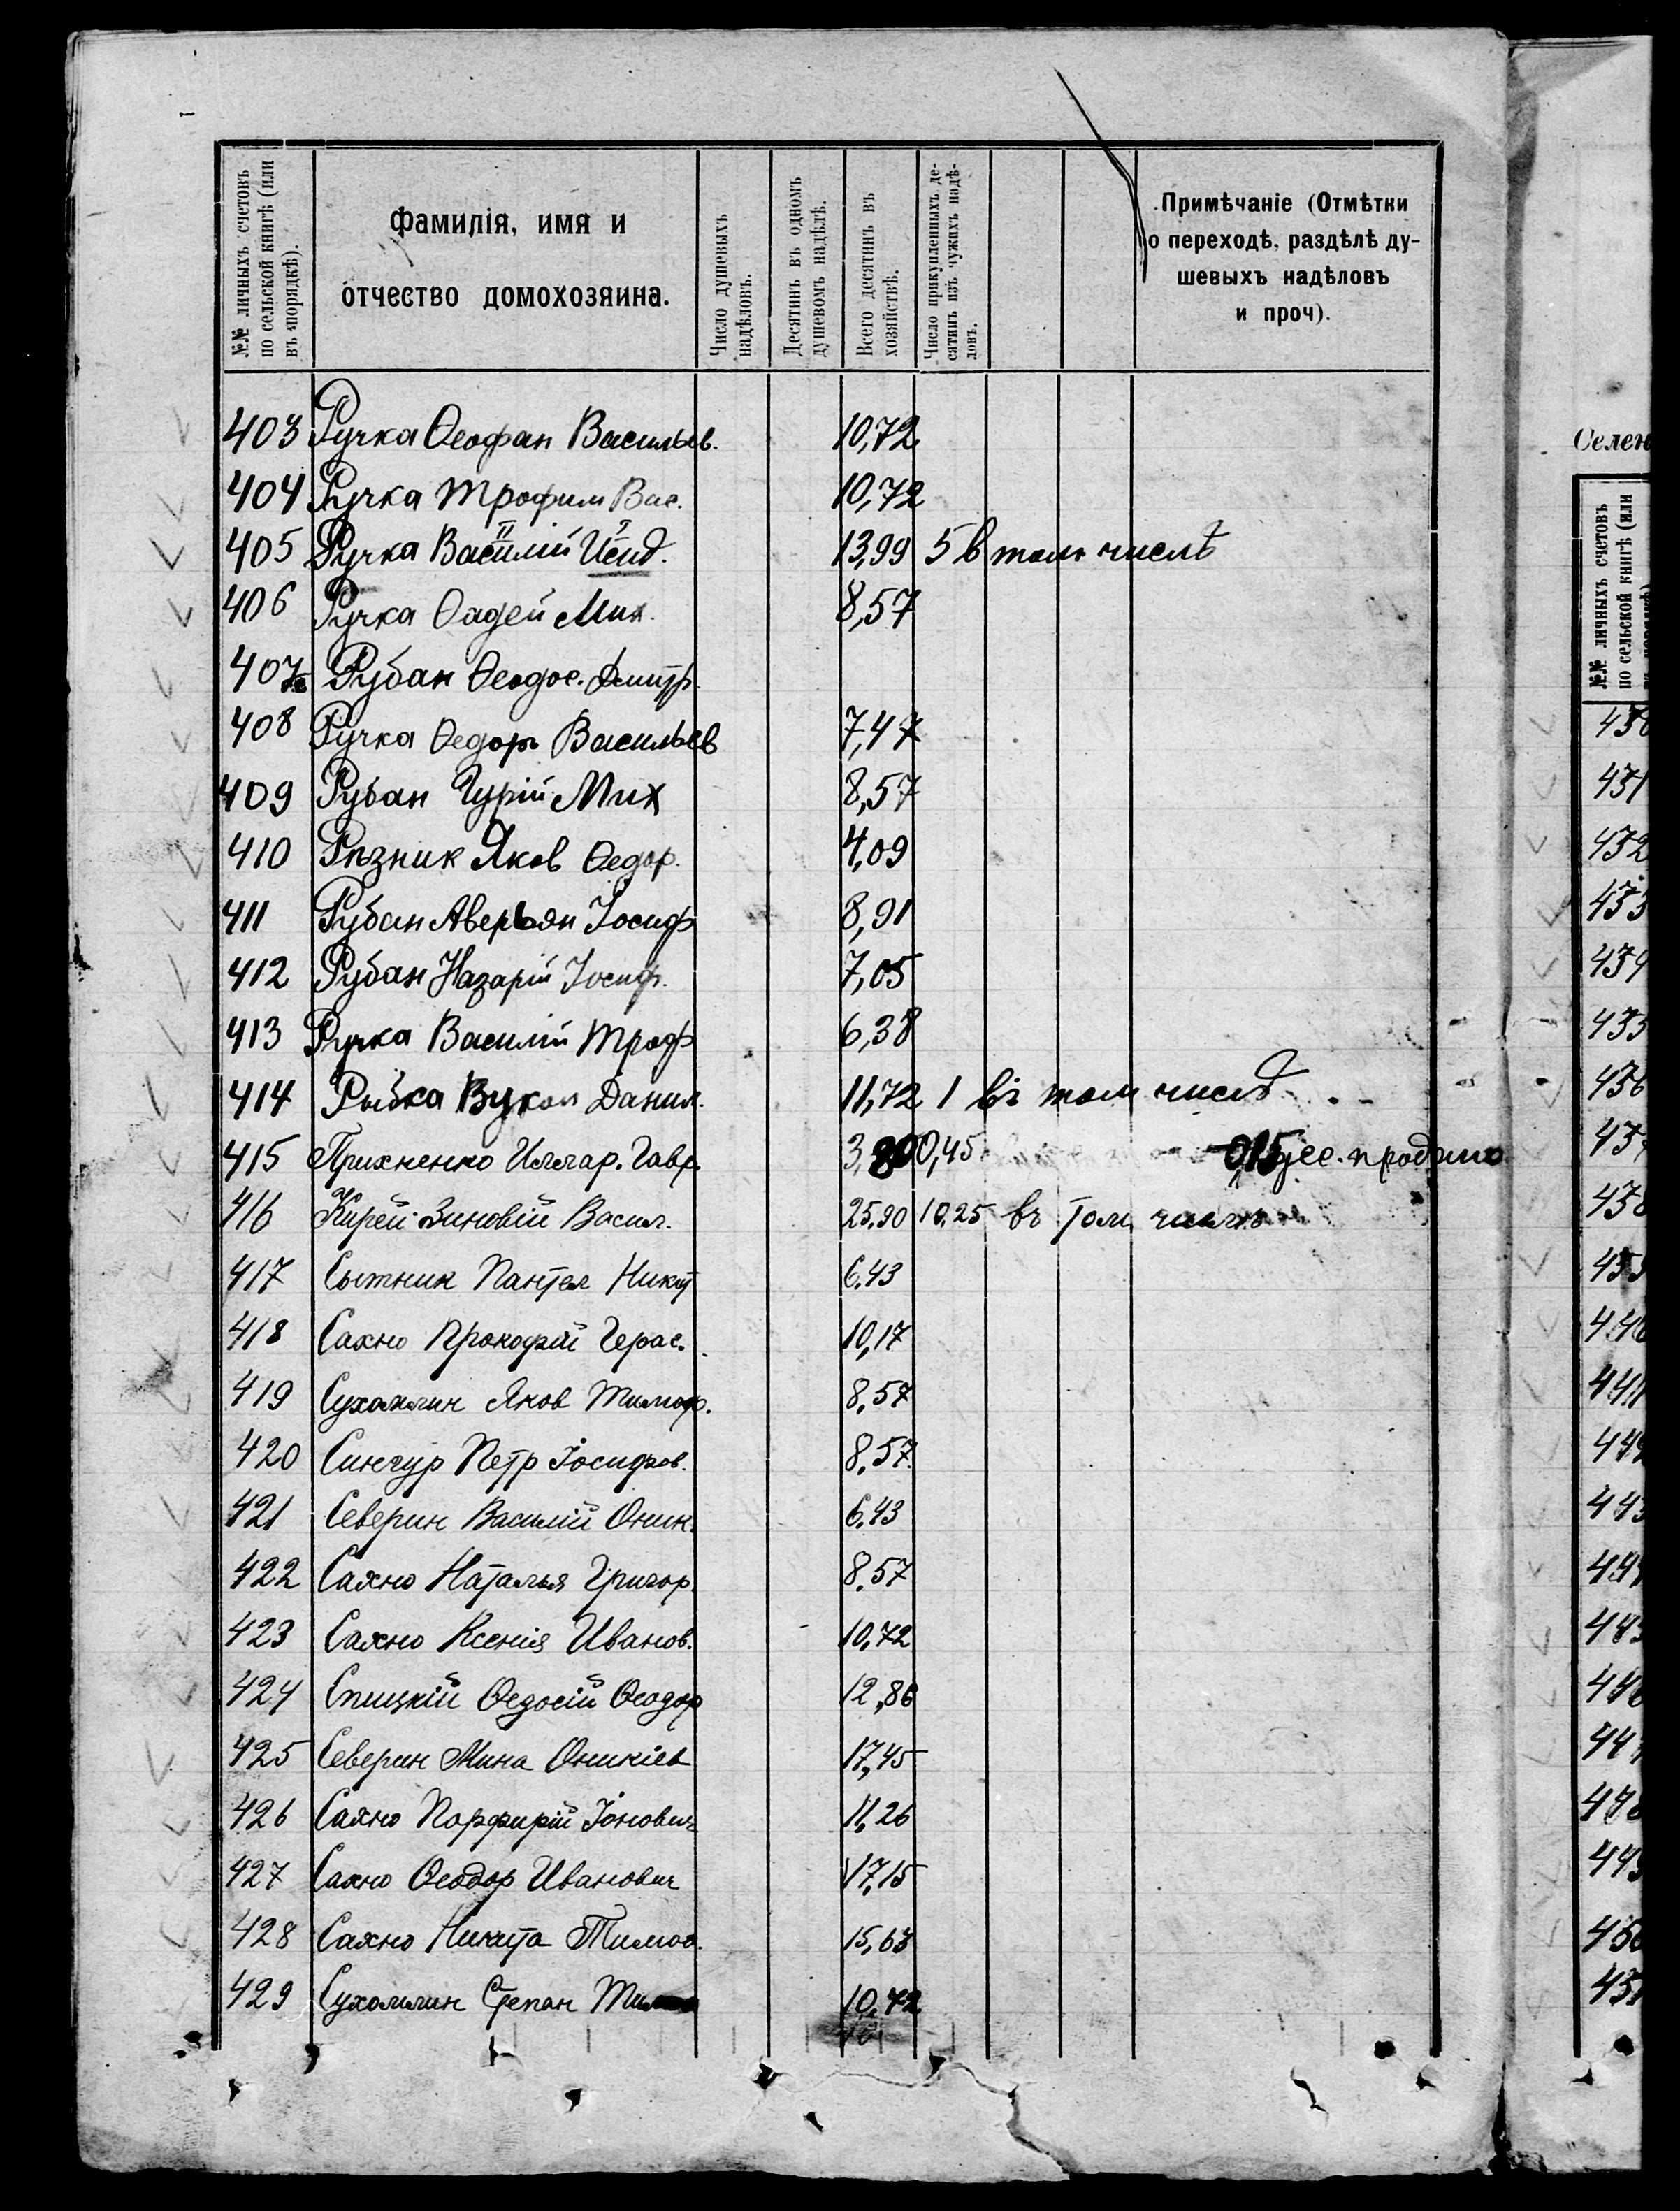 №№ личныхъ счетовъ
по сельской книгѣ (или
въ порядкѣ).
Фамилія, имя и
отчество домохозяина.
Число душевыхъ
надѣловъ.
Десятинъ въ одномъ
душевомъ надѣлѣ.
Всего десятинъ въ
хозяйствѣ.
Число прикупленныхъ де-
сятинъ изъ чужихъ надѣ-
ловъ.
Примѣчаніе (Отмѣтки
о переходѣ, раздѣлѣ ду-
шевыхъ надѣловъ
и проч).
403 Ручка Ѳеофан Васильев. 10,72
404 Ручка Трофим Вас. 10,72
405 Ручка Василій Исид. 13,99 5 в том числѣ
406 Ручка Ѳадей Мих. 8,57
407 Рубан Ѳеодос. Дмитр.
408 Ручка Ѳедоръ Васильев 7,47
409 Рубан Гурій Мих 8,57
410 Рѣзник Яков Ѳедор. 4,09
411 Рубан Аверьян Іосиф 8,91
412 Рубан Назарій Іосиф. 7,05
413 Ручка Василій Троф 6,38
414 Рыбка Вукол Данил. 11,72 1 въ том числѣ
415 Прихненко Иллар. Гавр. 3,80 0,45 0,15 дес. продано
416 Кирей Зиновій Васил. 25,90 10,25 въ том числѣ
417 Сытник Пантел Никит 6,43
418 Сахно Прокофій Герас. 10,17
419 Сухомлин Яков Тимоф. 8,57
420 Сингур Петр Іосифов. 8,57
421 Северин Василій Оник. 6,43
422 Сахно Наталья Григор. 8,57
423 Сахно Ксенія Иванов. 10,72
424 Спицкій Ѳедосій Ѳеодор 12,86
425 Северин Мина Оникіев 17,45
426 Сахно Порфирій Іонович 11,26
427 Сахно Ѳеодор Иванович 17,15
428 Сахно Никита Тимоѳ. 15,63
429 Сухомлин Степан 10,72
Селен
№№ личныхъ счетовъ
по сельской книгѣ (или
431
432
433
434
435
436